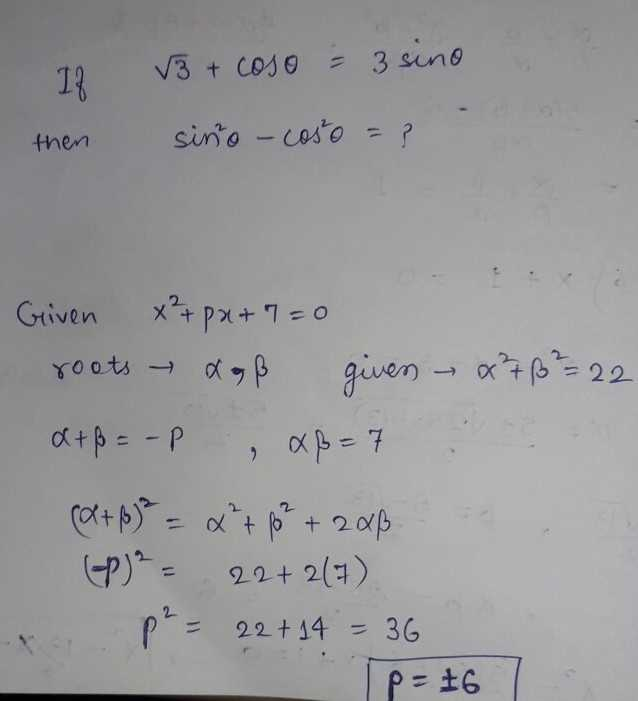 If √3 + cosθ = 3 sinθ
then sin²θ - cos²θ = ?
Given x² + px + 7 = 0
roots → α, β given → α² + β² = 22
α + β = -P , αβ = 7
(α+β)² = α² + β² + 2αβ
(-P)² = 22 + 2(7)
p² = 22 + 14 = 36
P = ±6